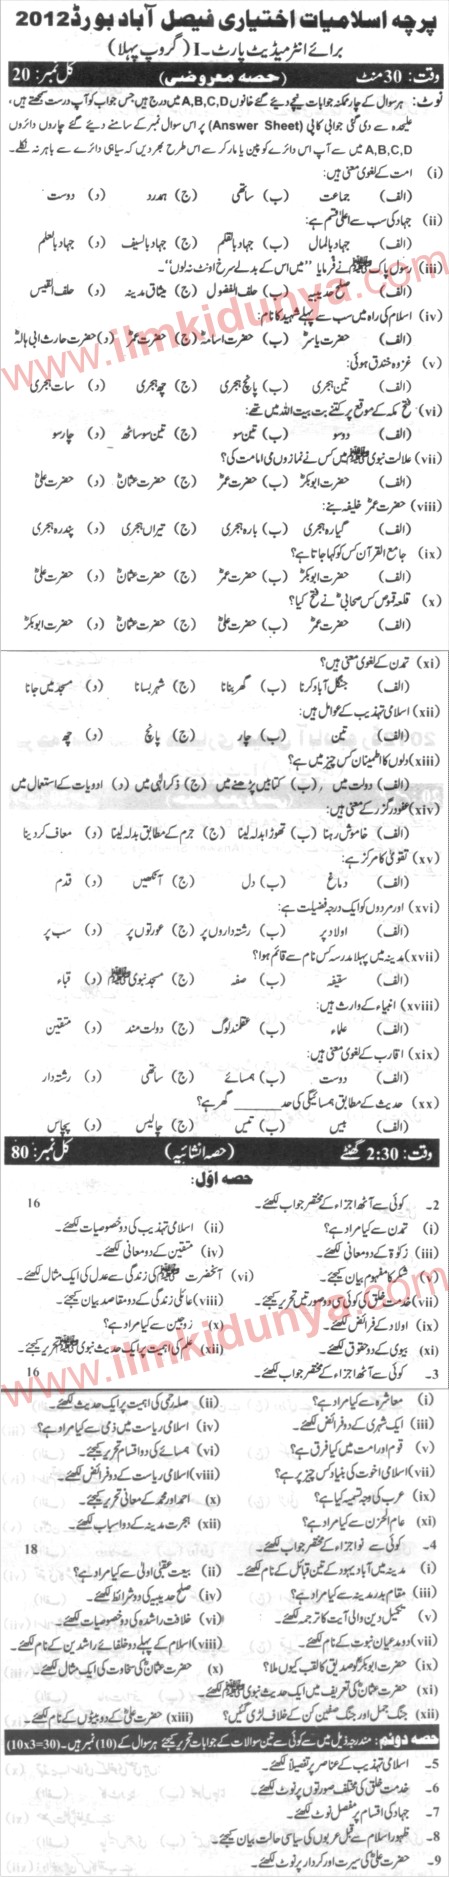 پرچہ اسلامیات اختیاری فیصل آباد بورڈ 2012
برائے انٹرمیڈیٹ پارٹ۔I (گروپ پہلا)
وقت: 30 منٹ (حصہ معروضی) کل نمبر: 20
نوٹ: ہر سوال کے چار ممکنہ جوابات نیچے دیئے گئے خانوں A,B,C,D میں درج ہیں جس جواب کو آپ درست سمجھتے ہیں،
علیحدہ سے دی گئی جوابی کاپی (Answer Sheet) پر اس سوال نمبر کے سامنے دیئے گئے چاروں دائروں
A,B,C,D میں سے آپ اس دائرے کو پین یا مارکر سے اس طرح بھر دیں کہ سیاہی دائرے سے باہر نہ نکلے۔
(i) امت کے لغوی معنی ہیں:
(الف) جماعت (ب) ساتھی (ج) ہمدرد (د) دوست
(ii) جہاد کی سب سے اعلیٰ قسم ہے:
(الف) جہاد بالمال (ب) جہاد بالقلم (ج) جہاد بالسیف (د) جہاد بالعلم
(iii) رسول پاک ﷺ نے فرمایا "میں اس کے بدلے سرخ اونٹ نہ لوں"۔
(الف) صلح حدیبیہ (ب) حلف الفضول (ج) میثاق مدینہ (د) حلف القیس
(iv) اسلام کی راہ میں سب سے پہلے شہید کا نام:
(الف) حضرت یاسرؓ (ب) حضرت اسامہؓ (ج) حضرت عمرؓ (د) حضرت حارث ابی ہالہؓ
(v) غزوہ خندق ہوئی:
(الف) تین ہجری (ب) پانچ ہجری (ج) چھ ہجری (د) سات ہجری
(vi) فتح مکہ کے موقع پر کتنے بت بیت اللہ میں تھے:
(الف) دو سو (ب) تین سو (ج) تین سو ساٹھ (د) چار سو
(vii) علالت نبوی ﷺ میں کس نے نمازوں میں امامت کی؟
(الف) حضرت ابوبکرؓ (ب) حضرت عمرؓ (ج) حضرت عثمانؓ (د) حضرت علیؓ
(viii) حضرت عمرؓ خلیفہ بنے:
(الف) گیارہ ہجری (ب) بارہ ہجری (ج) تیراں ہجری (د) پندرہ ہجری
(ix) جامع القرآن کس کو کہا جاتا ہے؟
(الف) حضرت ابوبکرؓ (ب) حضرت عمرؓ (ج) حضرت عثمانؓ (د) حضرت علیؓ
(x) قلعہ قموص کس صحابیؓ نے فتح کیا؟
(الف) حضرت عمرؓ (ب) حضرت علیؓ (ج) حضرت عثمانؓ (د) حضرت ابوبکرؓ
(xi) تمدن کے لغوی معنی ہیں؟
(الف) جنگل آباد کرنا (ب) گھر بنانا (ج) شہر بسانا (د) مسجد میں جانا
(xii) اسلامی تہذیب کے عوامل ہیں:
(الف) تین (ب) چار (ج) پانچ (د) چھ
(xiii) دلوں کا اطمینان کس چیز میں ہے؟
(الف) دولت میں (ب) کتابیں پڑھنے میں (ج) ذکر الٰہی میں (د) ادویات کے استعمال میں
(xiv) عفو و درگزر کے معنی ہیں:
(الف) خاموش رہنا (ب) تھوڑا بدلہ لینا (ج) جرم کے مطابق بدلہ لینا (د) معاف کر دینا
(xv) تقویٰ کا مرکز ہے:
(الف) دماغ (ب) دل (ج) آنکھیں (د) قدم
(xvi) اور مردوں کو ایک درجہ فضیلت ہے:
(الف) اولاد پر (ب) رشتہ داروں پر (ج) عورتوں پر (د) سب پر
(xvii) مدینہ میں پہلا مدرسہ کس نام سے قائم ہوا؟
(الف) سقیفہ (ب) صفہ (ج) مسجد نبوی ﷺ (د) قباء
(xviii) انبیاء کے وارث ہیں:
(الف) علماء (ب) عقلمند لوگ (ج) دولت مند (د) متقین
(xix) اقارب کے لغوی معنی ہیں:
(الف) دوست (ب) ہمسائے (ج) ساتھی (د) رشتہ دار
(xx) حدیث کے مطابق ہمسائیگی کی حد ______ گھر ہے؟
(الف) بیس (ب) تیس (ج) چالیس (د) پچاس
وقت: 2:30 گھنٹے (حصہ انشائیہ) کل نمبر: 80
حصہ اوّل:
2۔ کوئی سے آٹھ اجزاء کے مختصر جواب لکھئے۔ 16
(i) تمدن سے کیا مراد ہے؟ (ii) اسلامی تہذیب کی دو خصوصیات لکھئے۔
(iii) زکوٰۃ کے دو معانی لکھئے۔ (iv) متقین کے دو معانی لکھئے۔
(v) شکر کا مفہوم بیان کیجئے۔ (vi) آنحضرت ﷺ کی زندگی سے عدل کی ایک مثال لکھئے۔
(vii) خدمت خلق کی کوئی سی دو صورتیں تحریر کیجئے۔ (viii) عائلی زندگی کے دو مقاصد بیان کیجئے۔
(ix) اولاد کے فرائض لکھئے۔ (x) زوجین سے کیا مراد ہے؟
(xi) بیوی کے دو حقوق لکھئے۔ (xii) علم کی اہمیت پر ایک حدیث نبوی ﷺ تحریر کیجئے۔
3۔ کوئی سے آٹھ اجزاء کے مختصر جواب لکھئے۔ 16
(i) معاشرہ سے کیا مراد ہے؟ (ii) صلہ رحمی کی اہمیت پر ایک حدیث لکھئے۔
(iii) ایک شہری کے دو فرائض لکھئے۔ (iv) اسلامی ریاست میں ذمی سے کیا مراد ہے؟
(v) قوم اور امت میں کیا فرق ہے؟ (vi) ہمسائے کی دو اقسام تحریر کیجئے۔
(vii) اسلامی اخوت کی بنیاد کس چیز پر ہے؟ (viii) اسلامی ریاست کے دو فرائض لکھئے۔
(ix) عرب کی وجہ تسمیہ کیا ہے؟ (x) احمد اور محمد کے معانی تحریر کیجئے۔
(xi) عام الحزن سے کیا مراد ہے؟ (xii) ہجرت مدینہ کے دو اسباب لکھئے۔
4۔ کوئی سے نو اجزاء کے مختصر جواب لکھئے۔ 18
(i) مدینہ میں آباد یہود کے تین قبائل کے نام لکھئے۔ (ii) بیعت عقبی اولیٰ سے کیا مراد ہے؟
(iii) مقام بدر مدینہ سے کیا مراد ہے؟ (iv) صلح حدیبیہ کی دو شرائط لکھئے۔
(v) تکمیل دین والی آیت کا ترجمہ لکھئے۔ (vi) خلافت راشدہ کی دو خصوصیات لکھئے۔
(vii) دو مدعیان نبوت کے نام لکھئے۔ (viii) اسلام کے پہلے دو خلفائے راشدین کے نام لکھئے۔
(ix) حضرت ابوبکرؓ کو صدیق کا لقب کیوں ملا؟ (x) حضرت عثمانؓ کی سخاوت کی ایک مثال لکھئے۔
(xi) حضرت عثمانؓ کی تعریف میں ایک حدیث نبوی ﷺ لکھئے۔
(xii) جنگ جمل اور جنگ صفین کن کے خلاف لڑی گئیں؟ (xiii) حضرت علیؓ کے دو بیٹوں کے نام لکھئے۔
حصہ دوئم: مندرجہ ذیل میں سے کوئی سے تین سوالات کے جوابات تحریر کیجئے ہر سوال کے (10) نمبر ہیں۔ (10x3=30)
5۔ اسلامی تہذیب کے عناصر پر تفصیلاً لکھئے۔
6۔ خدمت خلق کی مختلف صورتوں پر نوٹ لکھئے۔
7۔ جہاد کی اقسام پر مفصل نوٹ لکھئے۔
8۔ ظہور اسلام سے قبل عربوں کی سیاسی حالت بیان کیجئے۔
9۔ حضرت علیؓ کی سیرت اور کردار پر نوٹ لکھئے۔
www.ilmkidunya.com
www.ilmkidunya.com